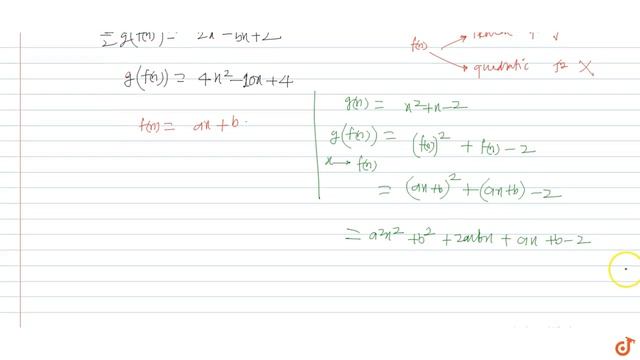 ½ g(f(x)) = 2x² - 5x + 2
g(f(x)) = 4x² - 10x + 4
f(x) = ax + b
f(x)
linear 1 ✓
quadratic x² X
g(x) = x² + x - 2
g(f(x)) = (f(x))² + f(x) - 2
x → f(x)
= (ax+b)² + (ax+b) - 2
= a²x² + b² + 2abx + ax + b - 2